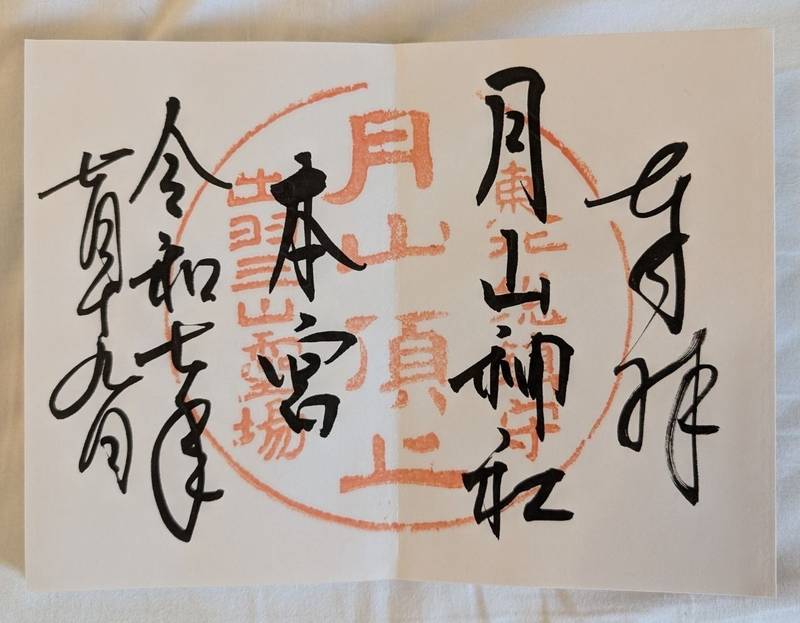 奉拝
月山神社
本宮
令和七年
七月十九日
東北総鎮守
月山頂上
出羽三山霊場